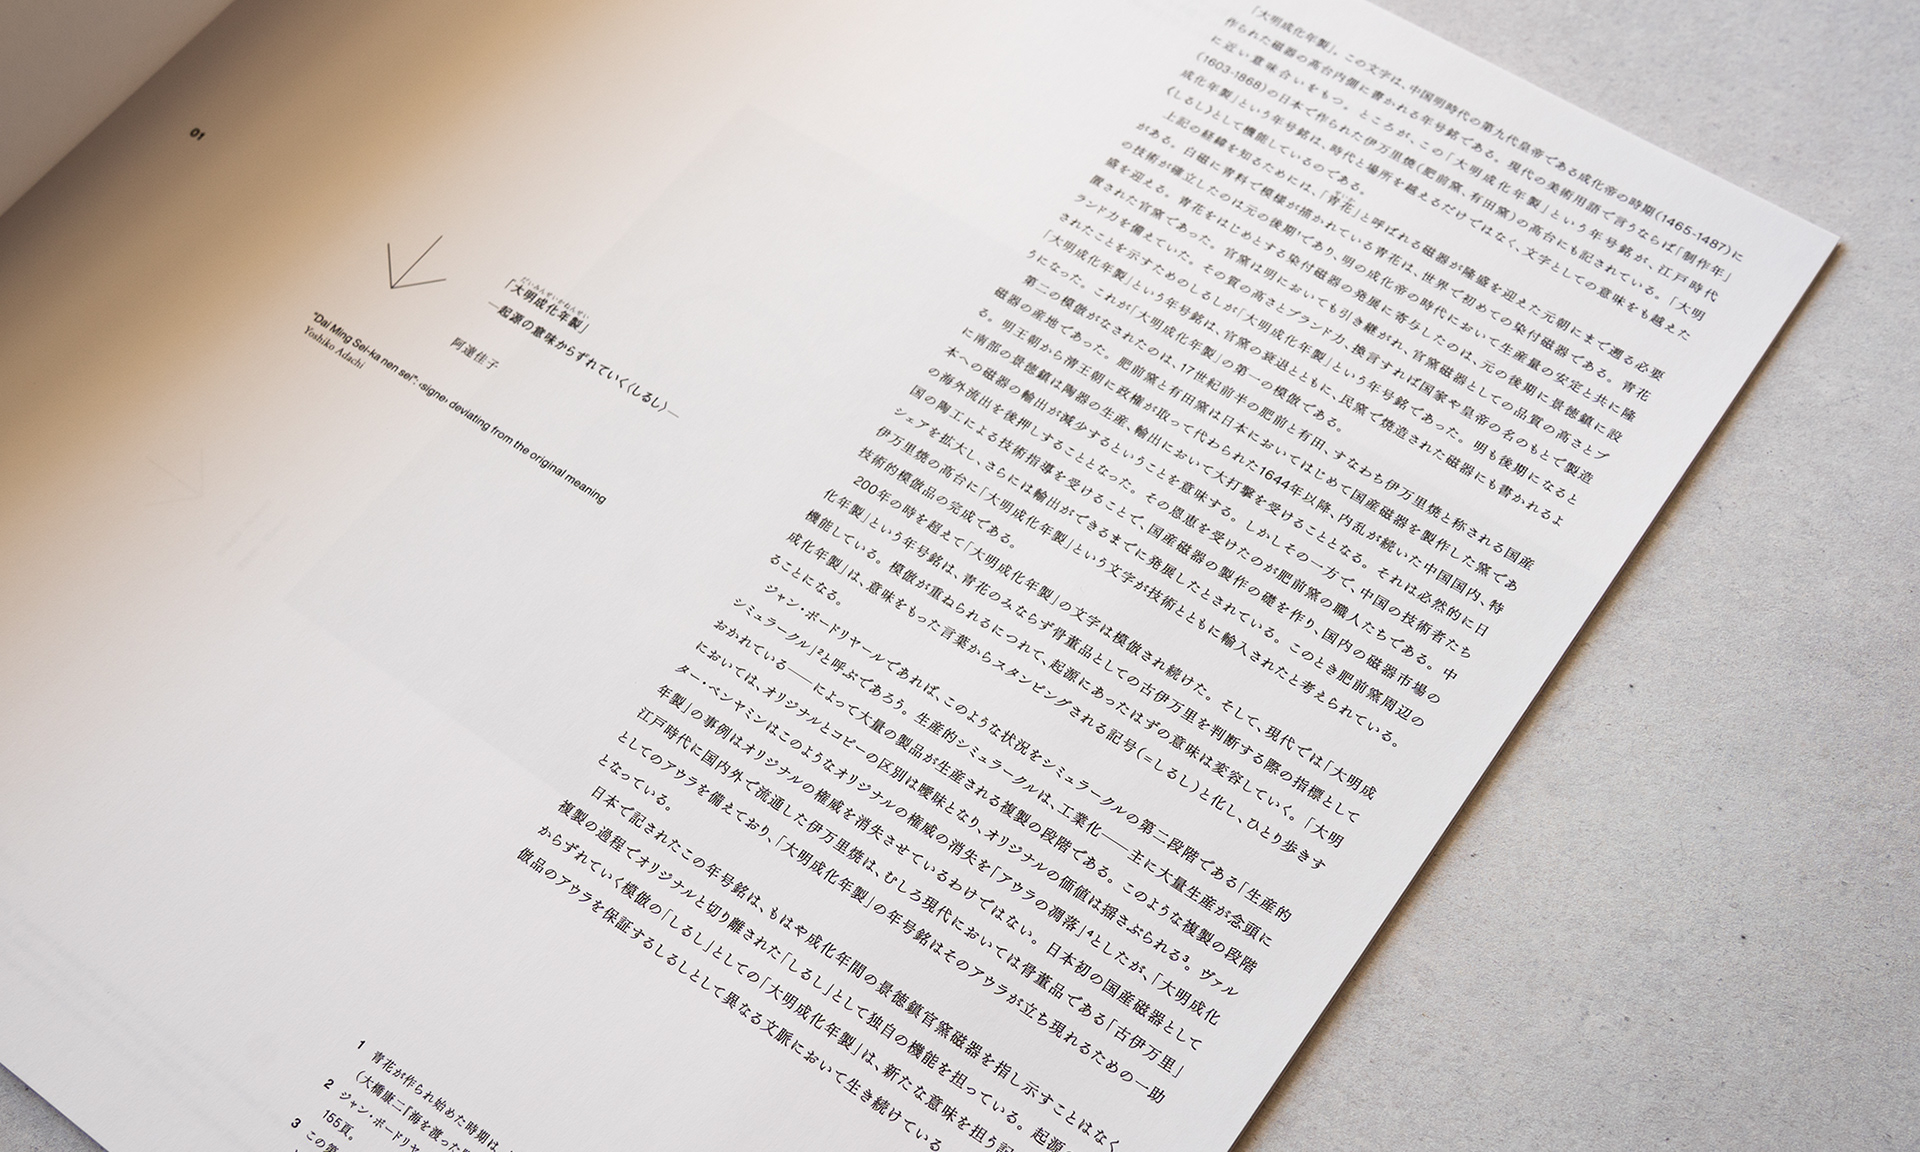 01
だいみんせいかねんせい
「大明成化年製」
—起源の意味からずれていく〈しるし〉—
阿達佳子
"Dai Ming Sei-ka nen sei": ‹signe› deviating from the original meaning
Yoshiko Adachi
「大明成化年製」。この文字は、中国明時代の第九代皇帝である成化帝の時期(1465-1487)に
作られた磁器の高台内側に書かれる年号銘である。現代の美術用語で言うならば「制作年」
に近い意味合いをもつ。ところが、この「大明成化年製」という年号銘が、江戸時代
(1603-1868)の日本で作られた伊万里焼(肥前窯、有田窯)の高台にも記されている。「大明
成化年製」という年号銘は、時代と場所を越えるだけではなく、文字としての意味をも越えた
〈しるし〉として機能しているのである。
上記の経緯を知るためには、「青花」と呼ばれる磁器が隆盛を迎えた元朝にまで遡る必要
がある。白磁に青料で模様が描かれている青花は、世界で初めての染付磁器である。青花
の技術が確立したのは元の後期¹であり、明の成化帝の時代において生産量の安定と共に隆
盛を迎える。青花をはじめとする染付磁器の発展に寄与したのは、元の後期に景徳鎮に設
置された官窯であった。官窯は明においても引き継がれ、官窯磁器としての品質の高さとブ
ランド力を備えていた。その質の高さとブランド力、換言すれば国家や皇帝の名のもとで製造
されたことを示すためのしるしが「大明成化年製」という年号銘であった。明も後期になると
「大明成化年製」という年号銘は、官窯の衰退とともに、民窯で焼造された磁器にも書かれるよ
うになった。これが「大明成化年製」の第一の模倣である。
第二の模倣がなされたのは、17世紀前半の肥前と有田、すなわち伊万里焼と称される国産
磁器の産地であった。肥前窯と有田窯は日本においてはじめて国産磁器を製作した窯であ
る。明王朝から清王朝に政権が取って代わられた1644年以降、内乱が続いた中国国内、特
に南部の景徳鎮は陶器の生産、輸出において大打撃を受けることとなる。それは必然的に日
本への磁器の輸出が減少するということを意味する。しかしその一方で、中国の技術者たち
の海外流出を後押しすることとなった。その恩恵を受けたのが肥前窯の職人たちである。中
国の陶工による技術指導を受けることで、国産磁器の製作の礎を作り、国内の磁器市場の
シェアを拡大し、さらには輸出ができるまでに発展したとされている。このとき肥前窯周辺の
伊万里焼の高台に「大明成化年製」という文字が技術とともに輸入されたと考えられている。
技術的模倣品の完成である。
200年の時を超えて「大明成化年製」の文字は模倣され続けた。そして、現代では「大明成
化年製」という年号銘は、青花のみならず骨董品としての古伊万里を判断する際の指標として
機能している。模倣が重ねられるにつれて、起源にあったはずの意味は変容していく。「大明
成化年製」は、意味をもった言葉からスタンピングされる記号(=しるし)と化し、ひとり歩きす
ることになる。
ジャン・ボードリヤールであれば、このような状況をシミュラークルの第二段階である「生産的
シミュラークル」²と呼ぶであろう。生産的シミュラークルは、工業化——主に大量生産が念頭に
おかれている——によって大量の製品が生産される複製の段階である。このような複製の段階
においては、オリジナルとコピーの区別は曖昧となり、オリジナルの価値は揺さぶられる³。ヴァル
ター・ベンヤミンはこのようなオリジナルの権威の消失を「アウラの凋落」⁴としたが、「大明成化
年製」の事例はオリジナルの権威を消失させているわけではない。日本初の国産磁器として
江戸時代に国内外で流通した伊万里焼は、むしろ現代においては骨董品である「古伊万里」
としてのアウラを備えており、「大明成化年製」の年号銘はそのアウラが立ち現れるための一助
となっている。
日本で記されたこの年号銘は、もはや成化年間の景徳鎮官窯磁器を指し示すことはなく
複製の過程でオリジナルと切り離された「しるし」として独自の機能を担っている。起源の
からずれていく模倣の「しるし」としての「大明成化年製」は、新たな意味を担う記
倣品のアウラを保証するしるしとして異なる文脈において生き続けている
1 青花が作られ始めた時期は、
(大橋康二『海を渡った
2 ジャン・ボードリヤ
155頁。
3 この第